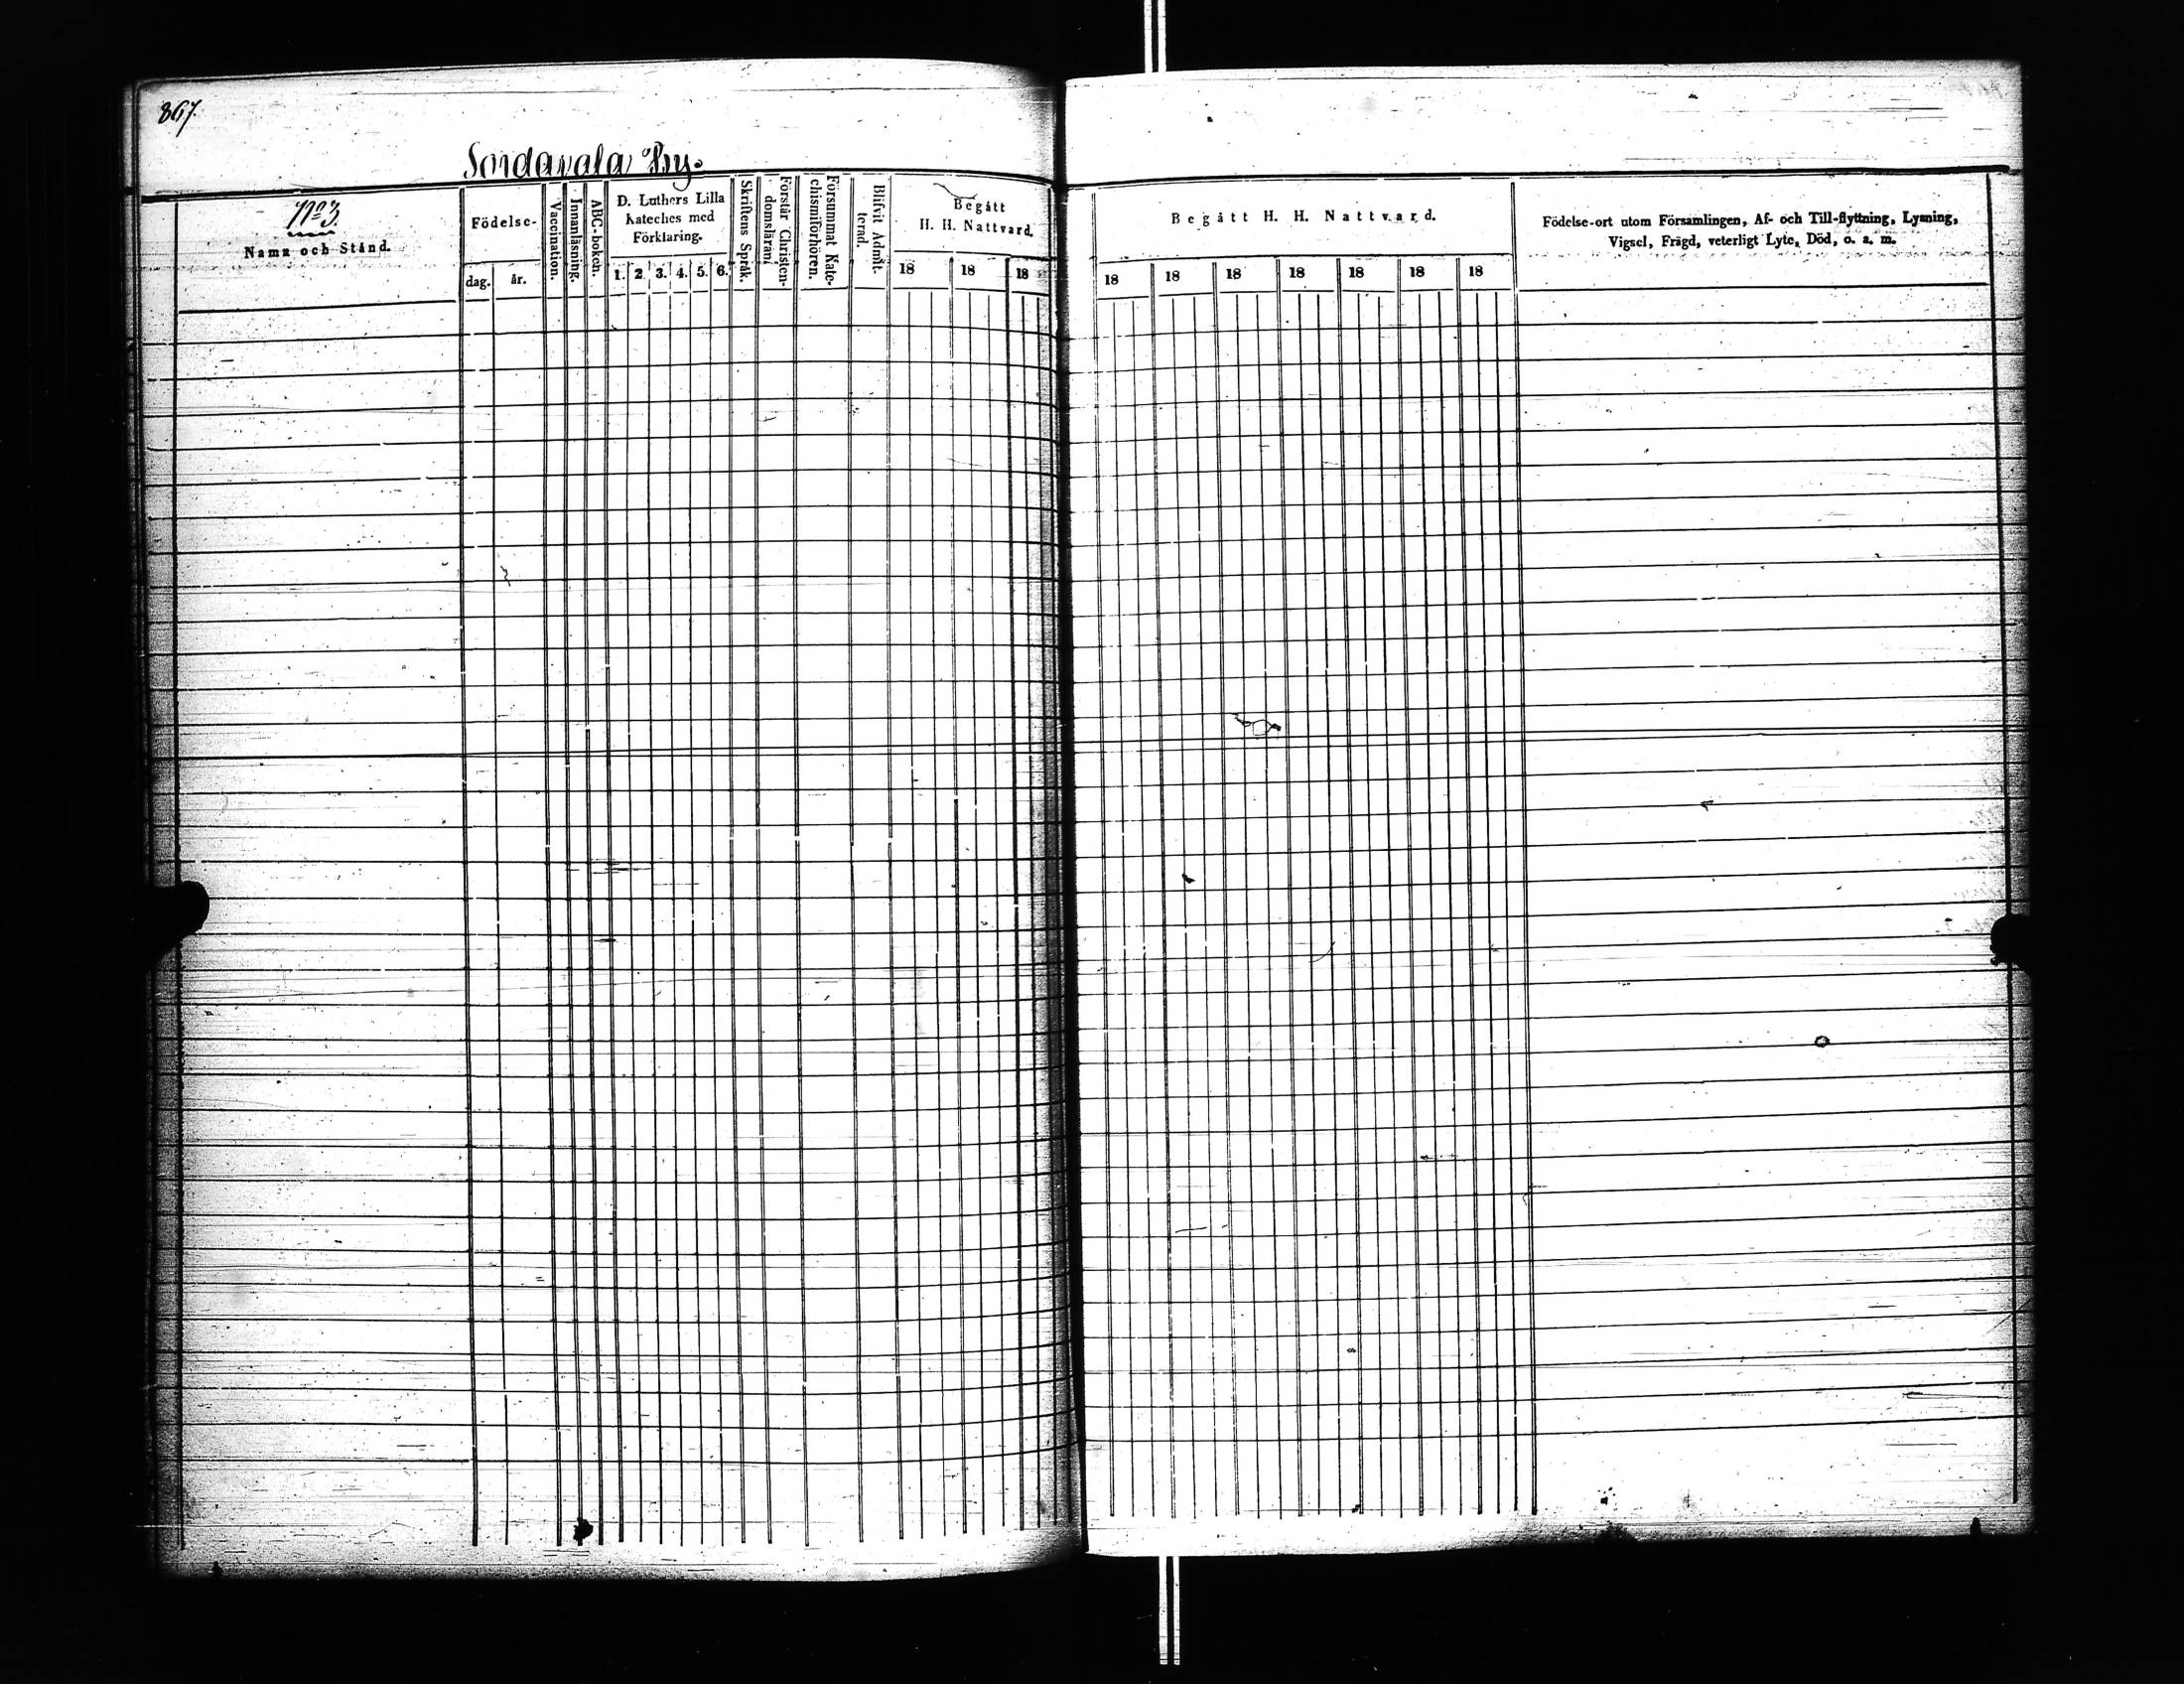 867.
Sordavala By.
No 3.
Namn och Stånd.
Födelse-
dag. år.
Vaccination.
Innanläsning.
ABC-boken.
D. Luthers Lilla
Kateches med
Förklaring.
1. 2. 3. 4. 5. 6.
Skriftens Språk.
Förstår Christen-
domsläran.
Försummat Kate-
chismiförhören.
Blifvit Admit-
terad.
Begått
H. H. Nattvard.
18 18 18
Begått H. H. Nattvard.
18 18 18 18 18 18 18
Födelse-ort utom Församlingen, Af- och Till-flyttning, Lysning,
Vigsel, Frägd, veterligt Lyte, Död, o. s. m.